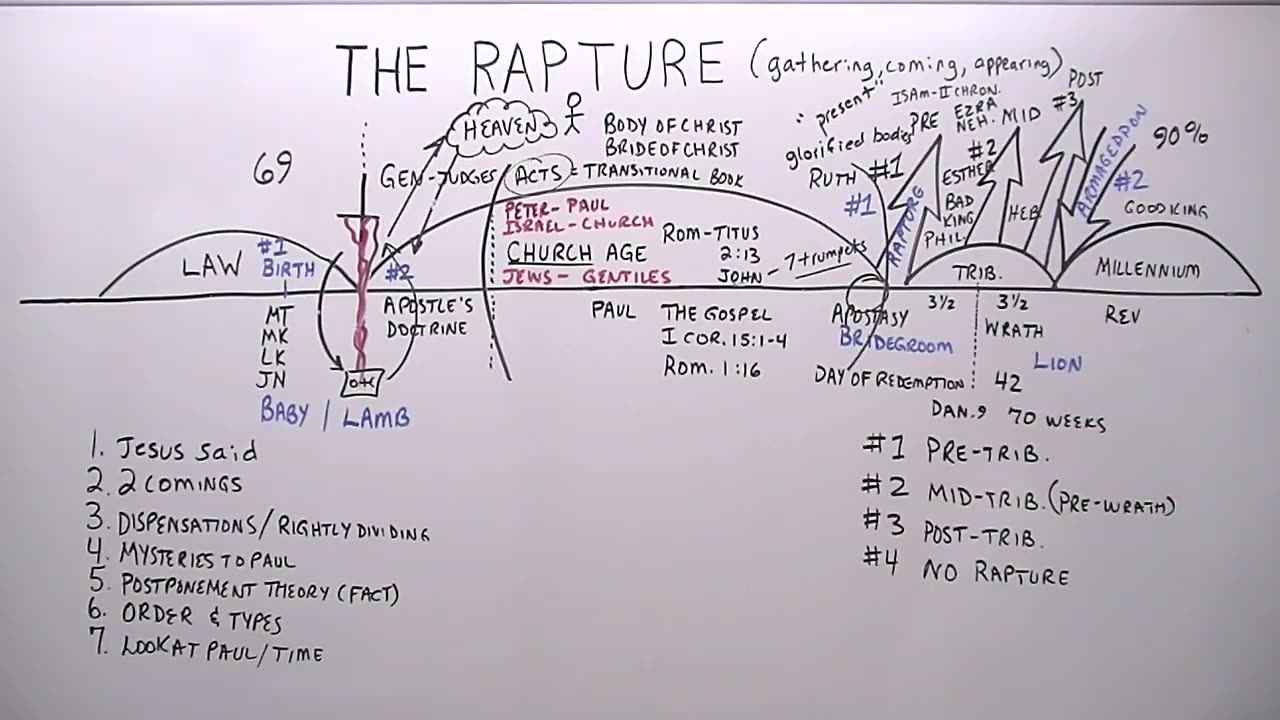 THE RAPTURE (gathering, coming, appearing)
69
HEAVEN
BODY OF CHRIST
BRIDE OF CHRIST
GEN-JUDGES
ACTS = TRANSITIONAL BOOK
"present"
glorified bodies
RUTH #1
#1
PRE
I SAM-II CHRON.
EZRA
NEH.
MID
#2
ESTHER
BAD
KING
PHIL.
HEB
#3
POST
RAPTURE
ARMAGEDDON
90%
#2
GOOD KING
LAW
#1
BIRTH
#2
PETER-PAUL
ISRAEL-CHURCH
CHURCH AGE
JEWS - GENTILES
ROM-TITUS
2:13
JOHN - 7 trumpets
TRIB.
MILLENNIUM
MT
MK
LK
JN
APOSTLE'S
DOCTRINE
BABY / LAMB
PAUL
THE GOSPEL
I COR. 15:1-4
ROM. 1:16
APOSTASY
BRIDEGROOM
DAY OF REDEMPTION
3½
3½
WRATH
REV
LION
42
DAN. 9 70 WEEKS
1. Jesus said
2. 2 COMINGS
3. DISPENSATIONS/RIGHTLY DIVIDING
4. MYSTERIES TO PAUL
5. POSTPONEMENT THEORY (FACT)
6. ORDER & TYPES
7. LOOK AT PAUL/TIME
#1 PRE-TRIB.
#2 MID-TRIB. (PRE-WRATH)
#3 POST-TRIB.
#4 NO RAPTURE